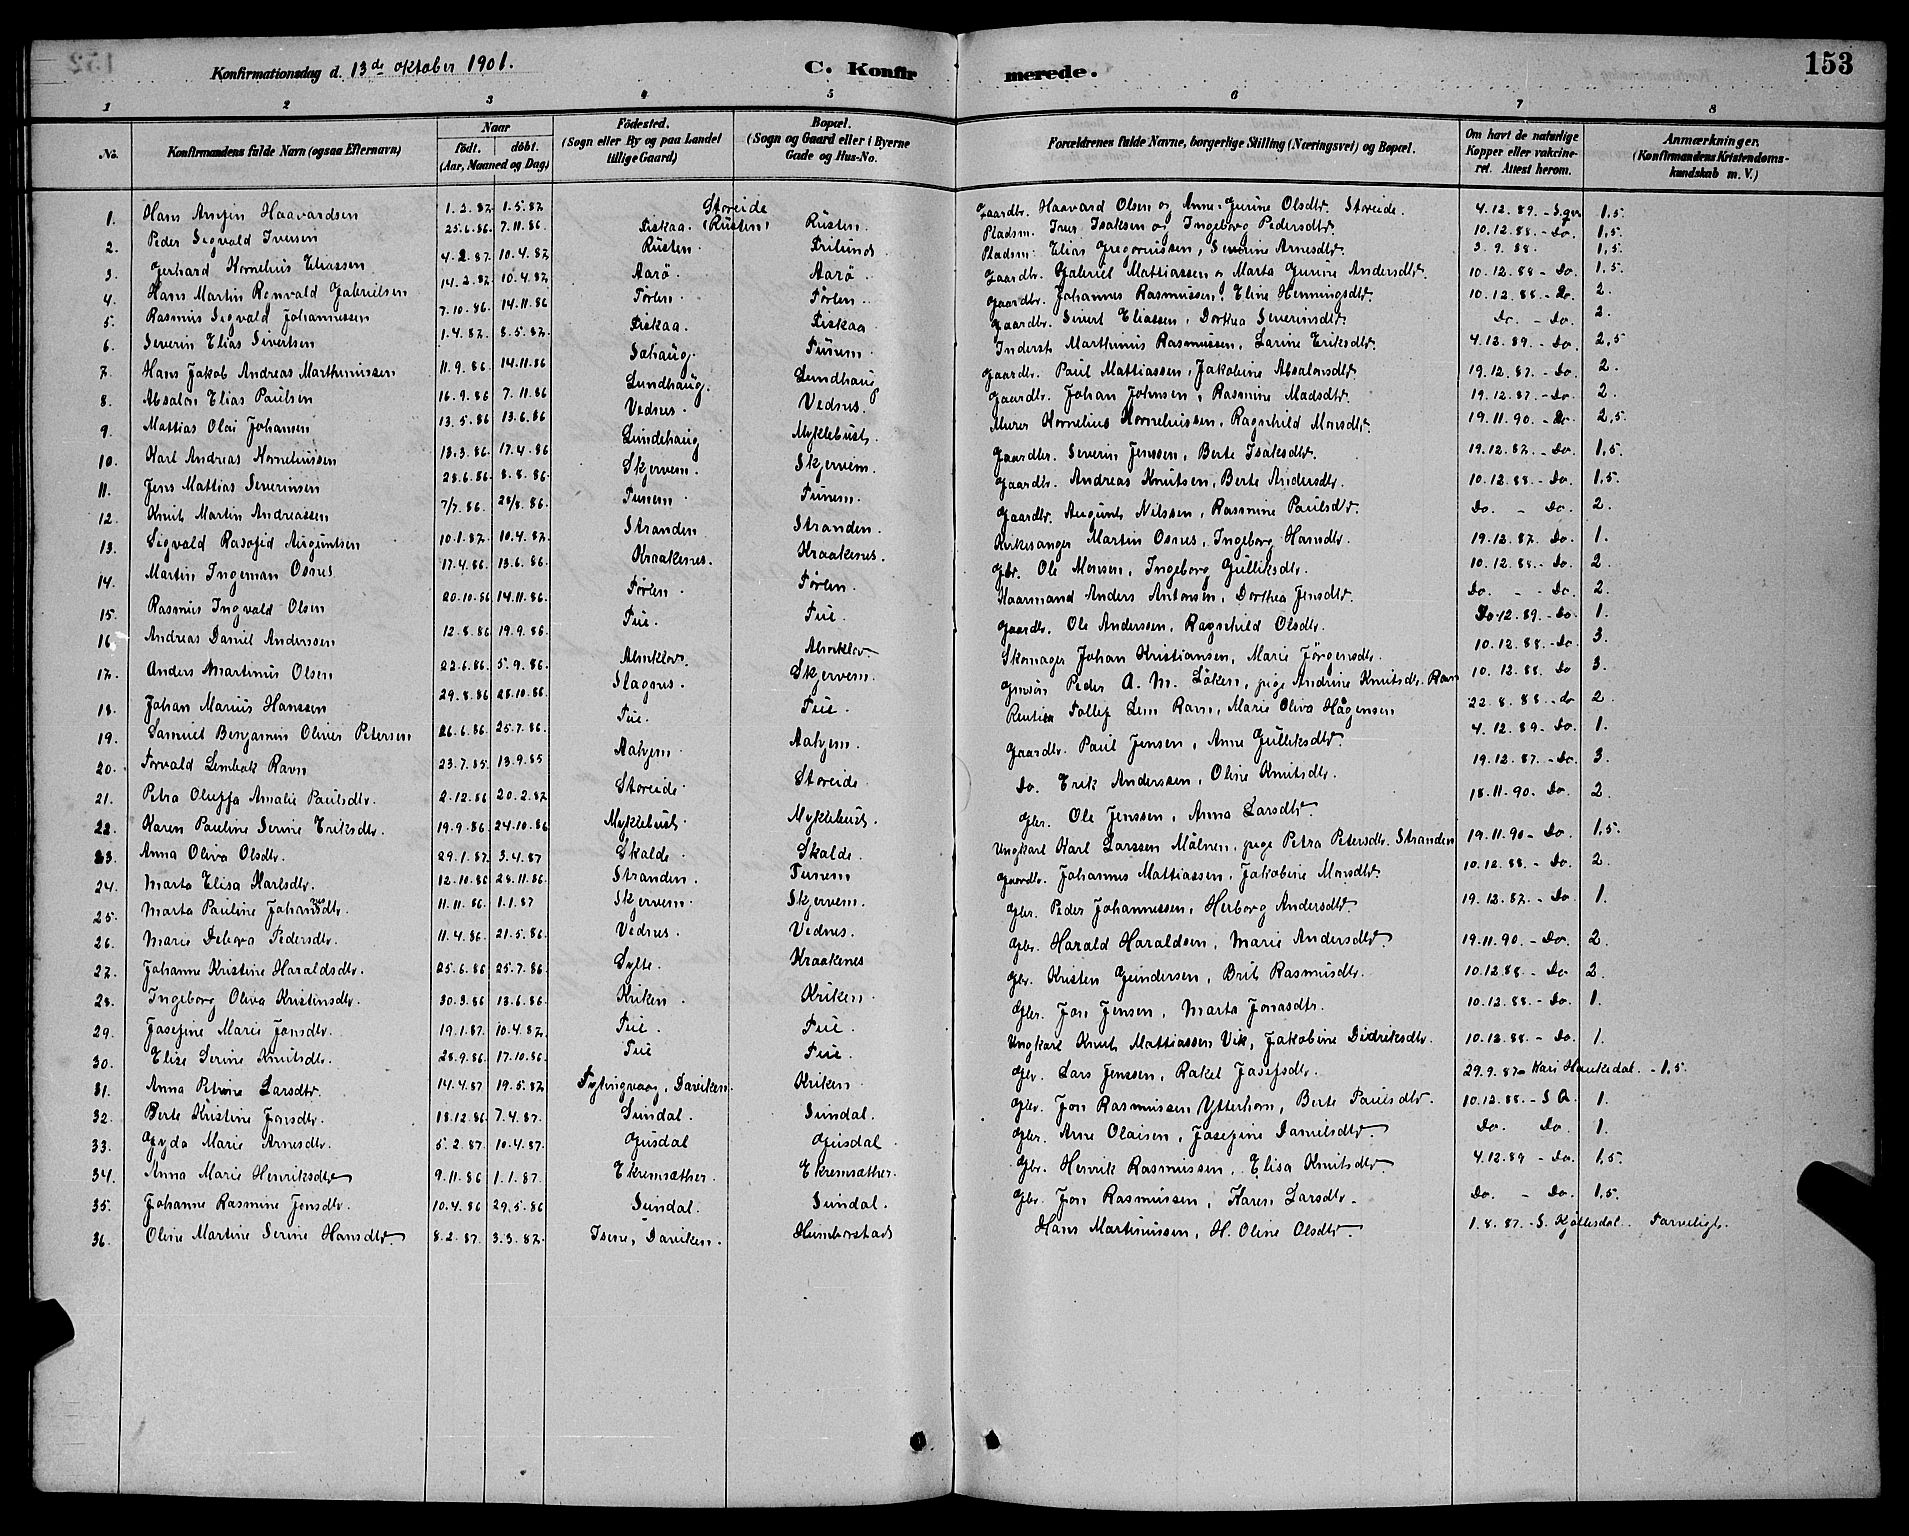 Konfirmationsdag d. 13de oktober 1901. C. Konfirmerede. 153
1 2 3 4 5 6 7 8
No. Konfirmandens fulde Navn (ogsaa Efternavn) Naar födt. döbt. (Aar, Maaned og Dag) Födested. (Sogn eller By og paa Landet tillige Gaard) Bopæl. (Sogn og Gaard eller i Byerne Gade og Hus-No. Forældrenes fulde Navne, borgerlige Stilling (Næringsvei) og Bopæl. Om havt de naturlige Kopper eller vakcineret. Attest herom. Anmærkninger. (Konfirmandens Kristendomskundskab m. V.)
1. Hans Haavardsen 1.2.87 1.5.87 Storeide Gaardbr. Haavard Olsen og Anne Gurine Olsdtr. Storeide. 4.12.89 1,5.
2. Peder Sigvald Iversen 25.6.86 7.11.86 Fiskaa (Rusten) Rusten. Pladsm. Iver Isaksen og Ingeborg Pedersdtr. 10.12.88 - Do. 1,5.
3. Gerhard Kornelius Eliassen 4.2.87 10.4.87 Rusten. Pladsm. Elias Gregoriussen, Severine Arnesdtr. 3.9.88. 1,5.
4. Hans Martin Ronvald Gabrielsen 14.2.87 10.4.87 Aarö. Aarö. Gaardbr. Gabriel Mattiassen og Marta Gurine Andersdtr. 10.12.88 - Do. 1,5.
5. Rasmus Sigvald Johannessen 7.10.86 14.11.86 Förlen. Förlen. Gaardbr. Johannes Rasmussen, Eline Henningsdtr. 10.12.88 - Do. 2.
6. Severin Elias Sivertsen 1.4.87. 8.5.87. Fiskaa. Fiskaa Gaardbr. Sivert Eliassen, Dorthea Severinsdtr. Do. - Do. 2.
7. Hans Jakob Andreas Marthinussen 11.9.86 14.11.86 Tunem. Inderst Marthinus Rasmussen, Larine Eriksdtr. 4.12.89. - Do. 2,5
8. Absalon Elias Paulsen 16.9.86 7.11.86 Lundhaug. Lundhaug Gaardbr. Paul Mattiassen, Jakobine Absalonsdtr. 19.12.87. - Do. 2.
9. Mattias Olai Johansen 13.5.86 13.6.86 Vednes. Vednes. Gaardbr. Johan Johnsen, Rasmine Madsdtr. 19.12.87. - Do. 2.
10. Karl Andreas Korneliussen 13.3.86. 17.4.86 Lundehaug Myklebust. Murer Kornelius Korneliussen, Ragnhild Monsdtr. 19.11.90. - Do 2,5.
11. Jens Mattias Severinsen 28.6.86. 8.8.86. Skjervem. Skjervem. Gaardbr. Severin Jenssen, Berte Isaksdtr. 19.12.87. - Do. 1,5.
12. Knut Martin Andreassen 7/7.86. 28/8.86. Tunem. Tunem. Gaardbr. Andreas Knutsen, Berte Andersdtr. 10.12.88. - Do. 1,5.
13. Sigvald Augustsen 10.1.87. 10.4.87. Stranden Stranden. Gaardbr. August Nilssen, Rasmine Paulsdtr. Do. - Do. 2.
14. Martin Ingeman Osnes 17.4.86. 13.6.86. Kraakenes. Kraakenes. Kirkesanger Martin Osnes, Ingeborg Hansdtr. 19.12.87. Do. 1.
15. Rasmus Ingvald Olsen 20.10.86 14.11.86. Förlen. Förlen. Gbr. Ole Monsen, Ingeborg Gulliksdtr. 10.12.88. - Do. 2.
16. Andreas Daniel Anderssen 12.8.86 19.9.86. Tue. Tue. Haarmand Anders Antonsen, Dorthea Jensdtr. Do. - Do. 2.
17. Anders Martinus Olsen 22.6.86. 5.9.86. Almklov. Almklov. Gaardbr. Ole Anderssen, Ragnhild Olsdtr. Do 12.89. - Do. 1.
18. Johan Marius Hanssen 29.8.86 28.10.86. Slagnes. Skjervem. Skomager Johan Kristiansen, Marie Jörgensdtr. 10.12.88. - Do 3.
19. Samuel Benjamin Oliver Petersen 26.6.86. 25.7.86. Tue. Tue. Peder A. M. Löken, pige Andrine Knutsdtr. Ravn 10.12.88. Do 3.
20. Torvald Lembak Ravn 23.7.85. 13.9.85 Aahjem. Aahjem. Rentier Tollef Lem Ravn, Marie Oliva Hågensen 22.8.88. - do 2
21. Petra Oluffa Amalie Paulsdtr. 2.12.86 20.2.87 Storeide. Storeide Gaardbr. Paul Jensen, Anne Gulliksdtr. 4.12.89 - Do 1.
22. Karen Pauline Serine Eriksdtr. 19.9.86 24.10.86 Myklebust. Myklebust. Do. Erik Anderssen, Oline Knutsdtr. 19.12.87. - Do. 3.
23. Anna Oliva Olsdtr. 29.1.87. 3.4.87 Skalde. Skalde. Gbr. Ole Jenssen, Anna Larsdtr. 18.11.90. Do. 2.
24. Marta Elisa Karlsdtr. 12.10.86 28.11.86. Stranden. Tunem Ungkarl Karl Larssen Mälnen, pige Petra Petersdtr. Stranden 19.11.90 - Do. 1,5.
25. Marta Pauline Johansdtr. 11.11.86. 1.1.87 Skjervem. Skjervem. Gaardbr. Johannes Mattiassen, Jakobine Monsdtr. 10.12.88. - Do. 2.
26. Marie Debora Pedersdtr. 11.4.86. 21.5.86. Vednes. Vednes. Gbr. Peder Johannessen, Herborg Andersdtr. 19.12.87. - Do. 1.
27. Johanne Kristine Haraldsdtr. 25.6.86 25.7.86. Sylte. Kraakenes Gbr. Harald Haraldsen, Marie Andersdtr. 19.11.90. - Do. 2.
28. Ingeborg Oliva Kristensdtr. 30.3.86 13.6.86. Kriken. Kriken. Gbr. Kristen Gundersen, Brit Rasmusdtr. 10.12.88. - Do 2.
29. Josefine Marie Jonsdtr. 19.1.87. 10.4.87. Tue. Tue. Gbr. Jon Jensen, Marta Jonasdtr. 10.12.88. - Do. 1.
30. Elise Serine Knutsdtr. 28.9.86 17.10.86. Tue Tue. Ungkarl Knut Mattiassen Vik, Jakobine Didriksdtr. 10.12.88. - Do. 1.
31. Anna Petrine Larsdtr. 14.4.87 19.5.87 Daviken. Kriken. Gbr. Lars Jenssen, Rakel Josefsdtr. 29.9.87 - Kari Haukedal. - 1,5.
32. Berte Kristine Jonsdtr. 18.12.86 7.4.87. Sundal. Sundal. Gbr. Jon Rasmussen Ytterhorn, Berte Paulsdtr. 10.12.88. - 1.
33. Gyda Marie Arnesdtr. 5.2.87. 10.4.87. Gusdal Gusdal Gbr. Arne Olaisen, Josefine Danielsdtr. Do. Do. 1.
34. Anna Marie Henriksdtr. 9.11.86 1.1.87. Ekremsæther. Ekremsæther. Gbr. Henrik Rasmussen, Elisa Knutsdtr. 4.12.89 - Do. 1,5.
35. Johanne Rasmine Jonsdtr. 10.4.86 29.5.86 Sundal. Sundal. Gbr. Jon Rasmussen, Karen Larsdtr. Do. - Do. 1,5.
36. Oline Martine Serine Hansdtr. 8.2.87. 3.3.87. Isene, Daviken. Humborstad Hans Martinussen, H. Oline Olsdtr. 1.8.87. - S. Kjöllesdal. Farveligt.